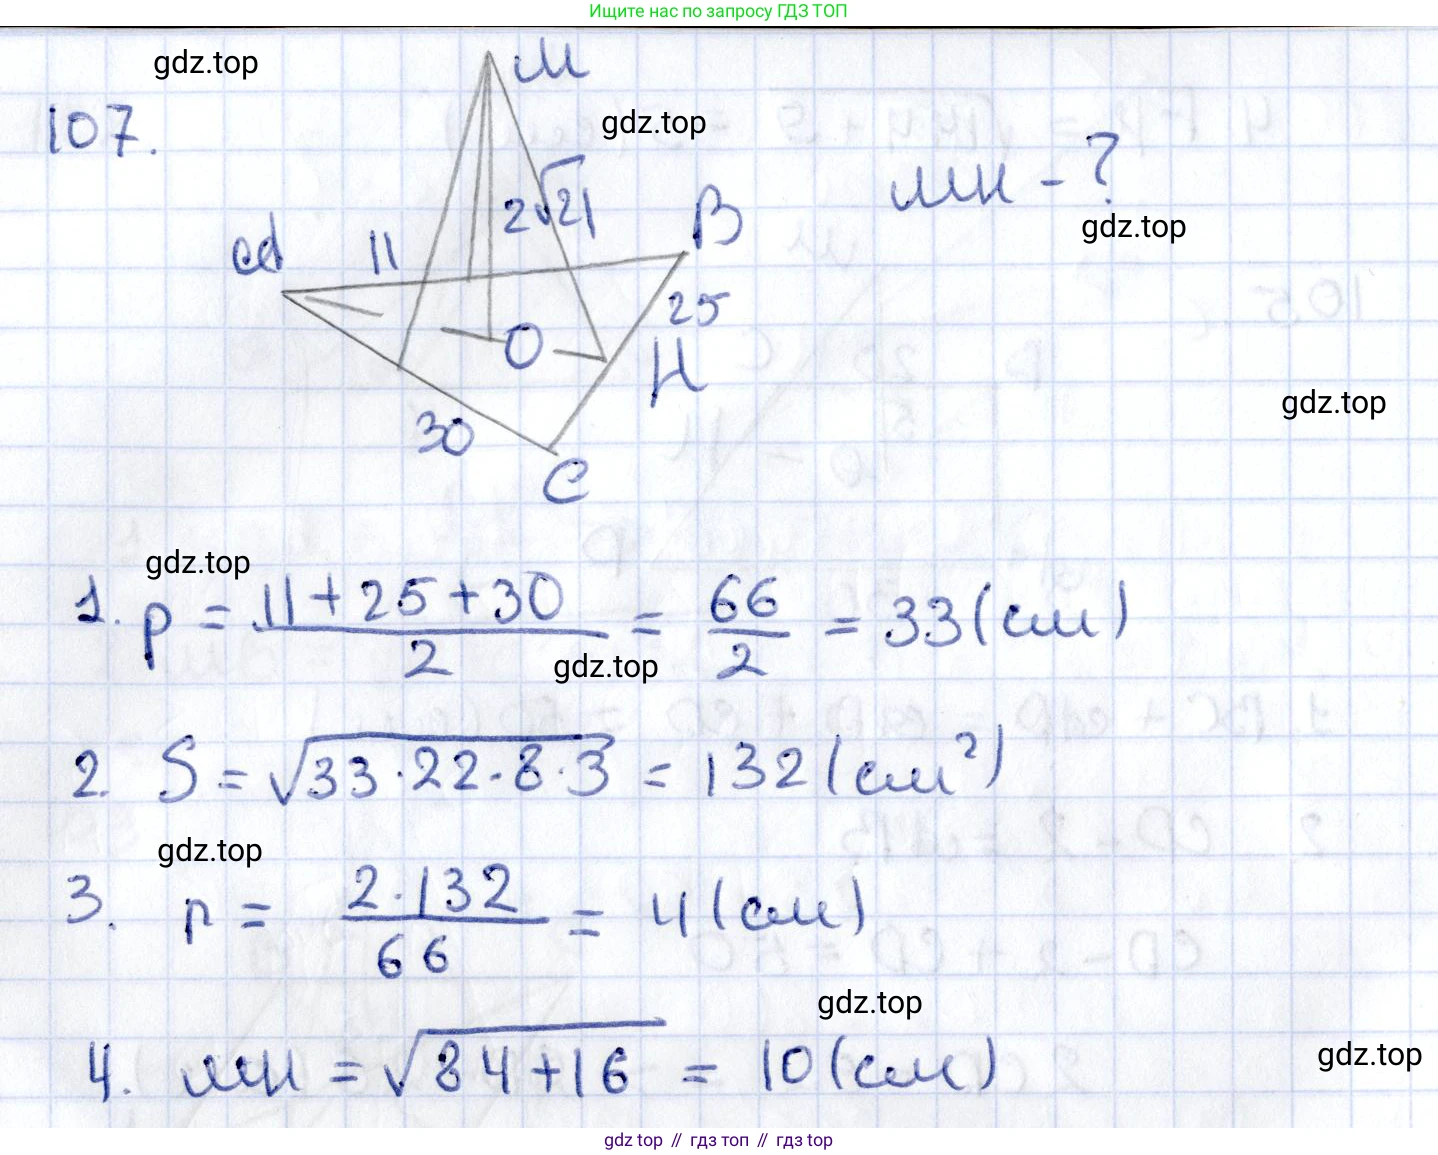 Ищите нас по запросу ГДЗ ТОП
gdz.top
M
107.
gdz.top
MH - ?
gdz.top
2√21
B
A
11
25
O
H
gdz.top
30
C
gdz.top
1. p = 11+25+30/2 = 66/2 = 33 (см)
gdz.top
2. S = √33·22·8·3 = 132 (см²)
gdz.top
3. r = 2·132/66 = 4 (см)
gdz.top
4. MH = √84+16 = 10 (см)
gdz.top
gdz top // гдз топ // гдз top